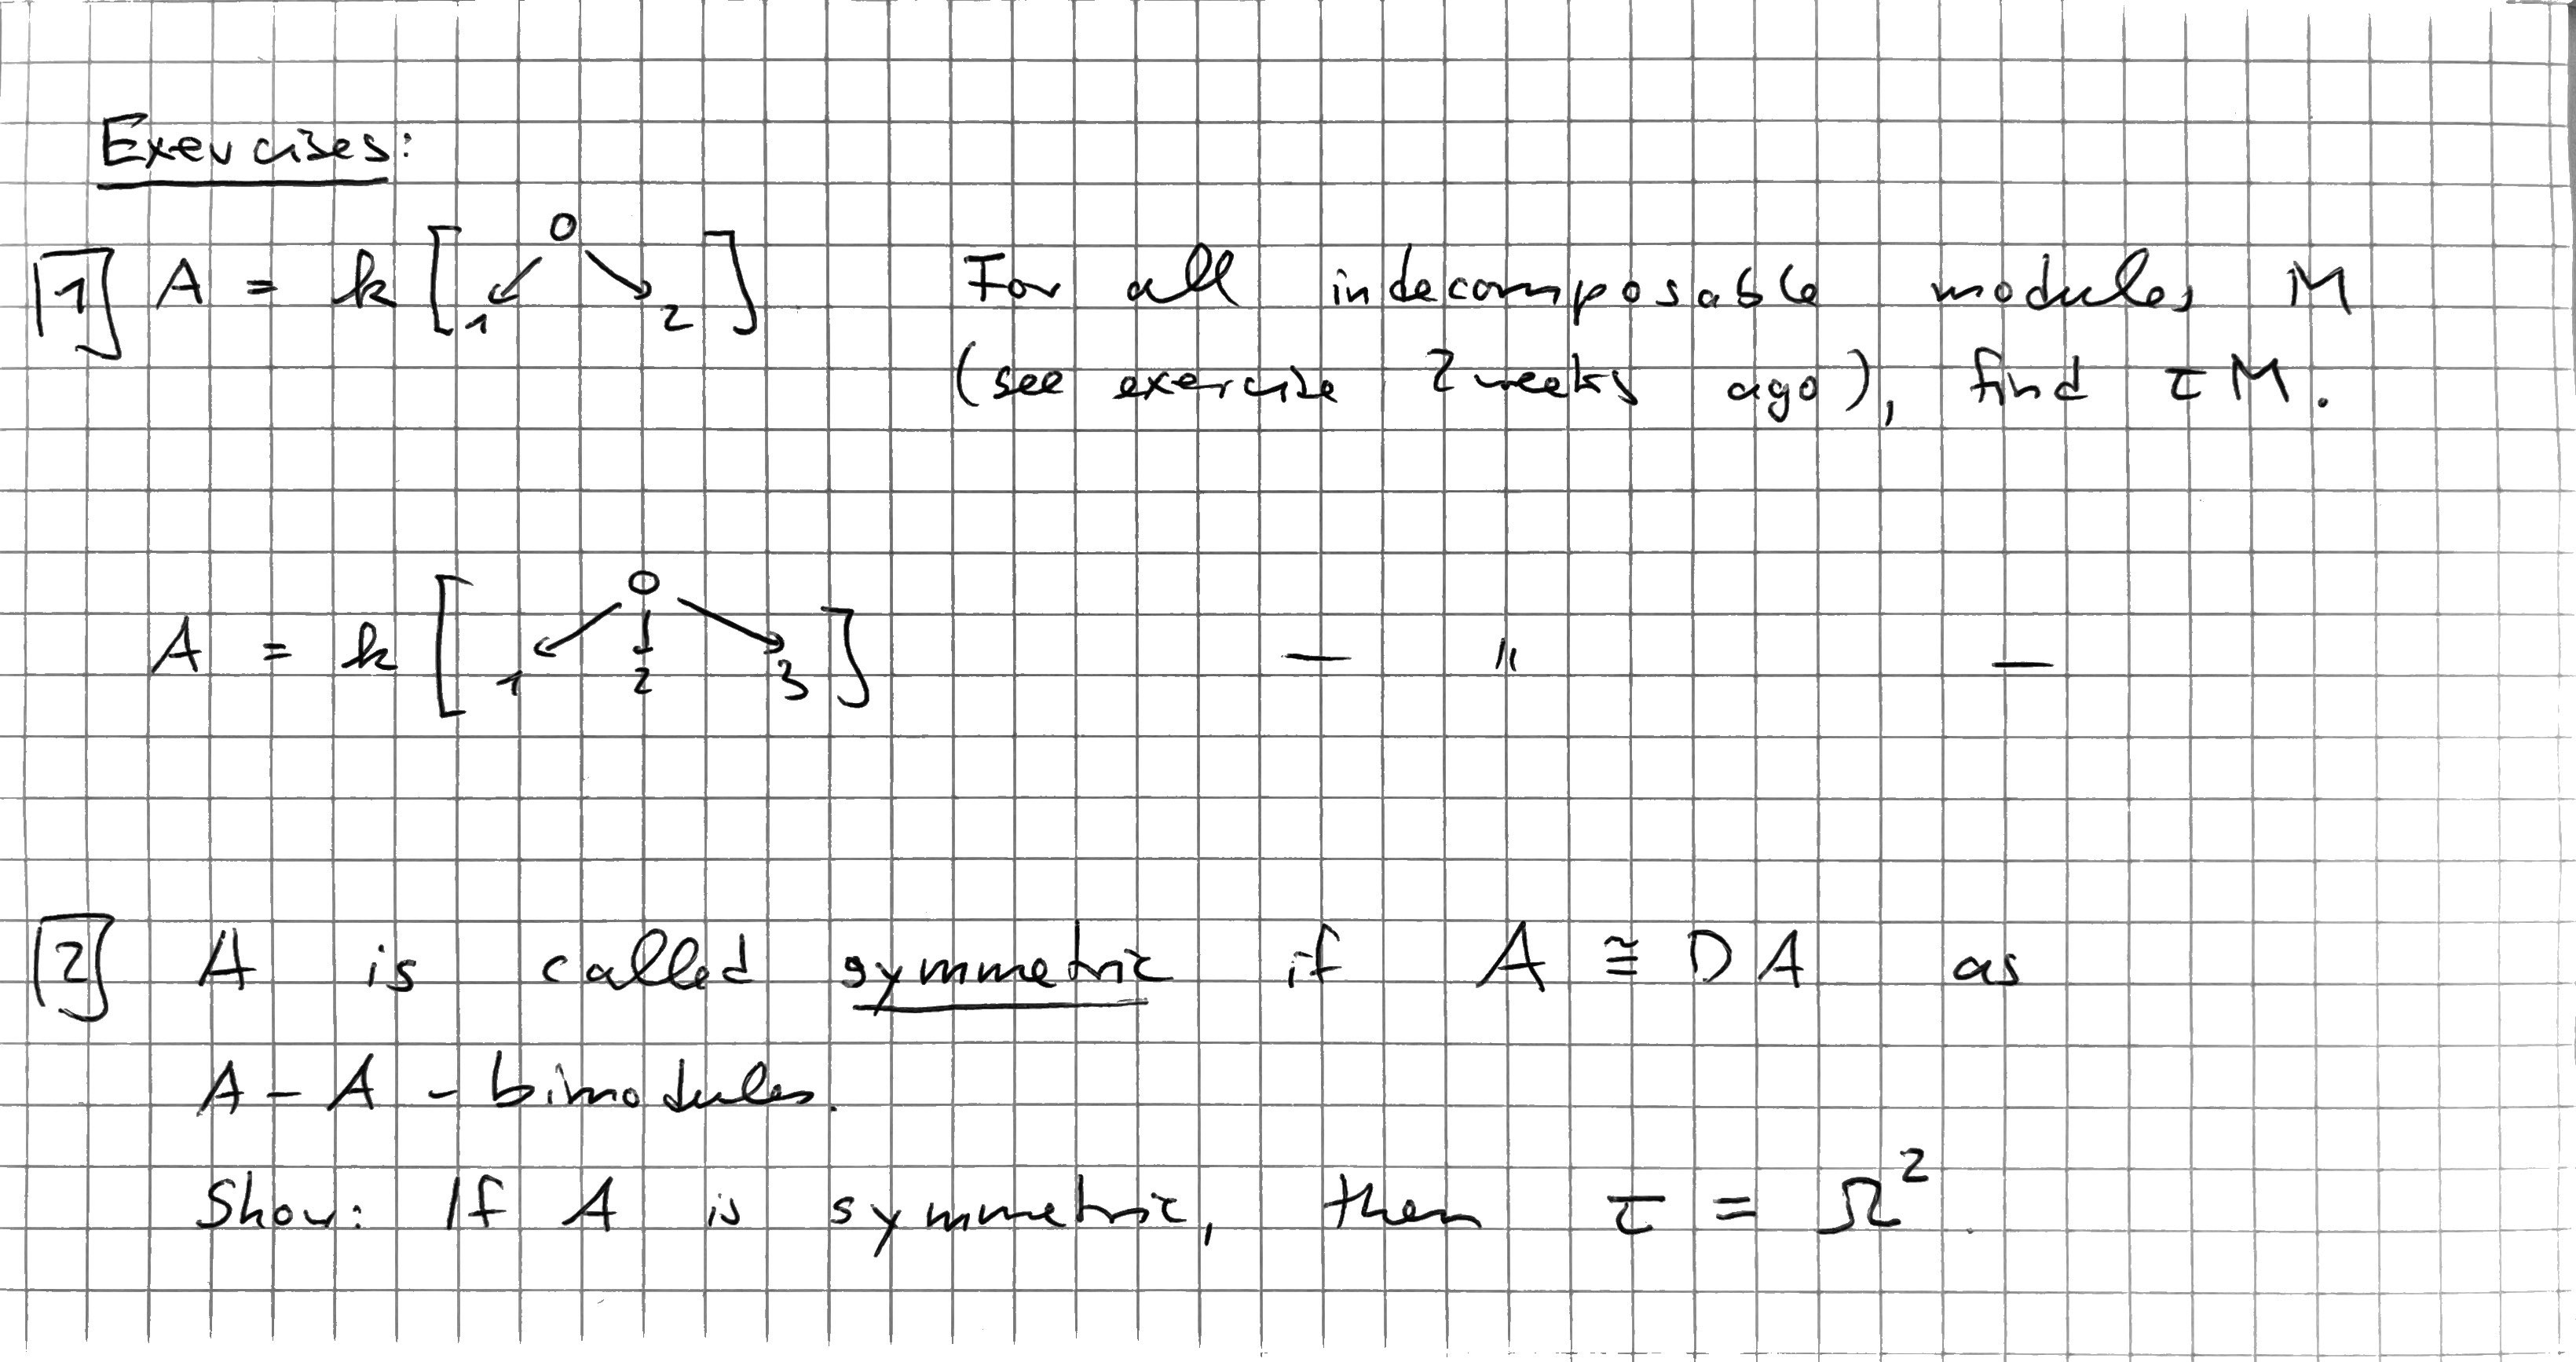 Exercises:
[1] A = k [ 0 ↙ ↘ 1 2 ] For all indecomposable modules M
(see exercise 2 weeks ago), find τM.
A = k [ 0 ↙ ↓ ↘ 1 2 3 ] — " —
[2] A is called symmetric if A ≅ DA as
A-A-bimodules.
Show: If A is symmetric, then τ = Ω².